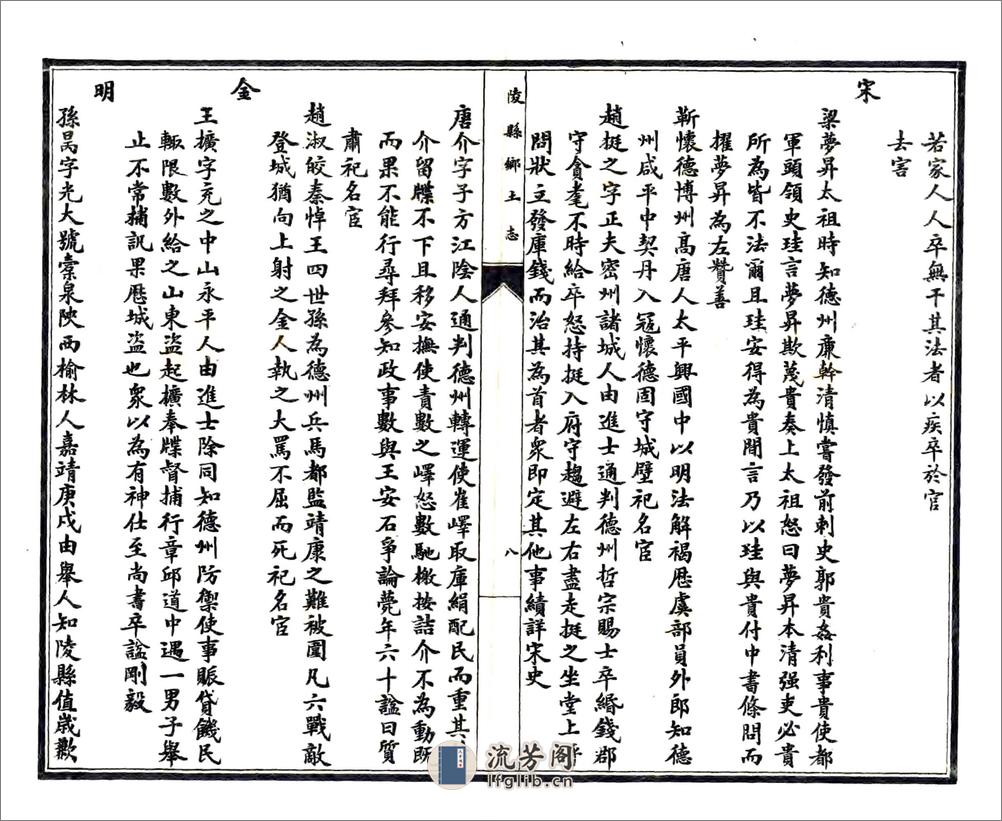 若家人人卒無干其法者以疾卒於官
去官
宋
梁夢昇太祖時知德州廉幹清慎嘗發前刺史郭貴姦利事貴使都
軍頭領史珪言夢昇欺蔑貴奏上太祖怒曰夢昇本清强吏必貴
所為皆不法爾且珪安得為貴間言乃以珪與貴付中書條問而
擢夢昇為左贊善
靳懷德博州高唐人太平興國中以明法解褐歷虞部員外郎知德
州咸平中契丹入冦懷德固守城壁祀名宦
趙挺之字正夫密州諸城人由進士通判德州哲宗賜士卒緡錢郡
守貪耄不時給卒怒持挺入府守趨避左右盡走挺之坐堂上呼
問狀立發庫錢而治其為首者衆即定其他事績詳宋史
陵縣鄉土志
八
唐介字子方江陰人通判德州轉運使崔嶧取庫絹配民而重其
介留牒不下且移安撫使責數之嶧怒數馳檄按詰介不為動既
而果不能行尋拜參知政事數與王安石爭論薨年六十謚曰質
肅祀名宦
趙淑皎秦悼王四世孫為德州兵馬都監靖康之難被圍凡六戰敵
登城猶向上射之金人執之大罵不屈而死祀名宦
金
王擴字充之中山永平人由進士除同知德州防禦使事賑貸饑民
輒限數外給之山東盗起擴奉牒督捕行章邱道中遇一男子舉
止不常捕訊果歷城盗也衆以為有神仕至尚書卒謚剛毅
明
孫昺字光大號橐泉陝西榆林人嘉靖庚戌由舉人知陵縣值歲歉
流芳阁
lfglib.cn